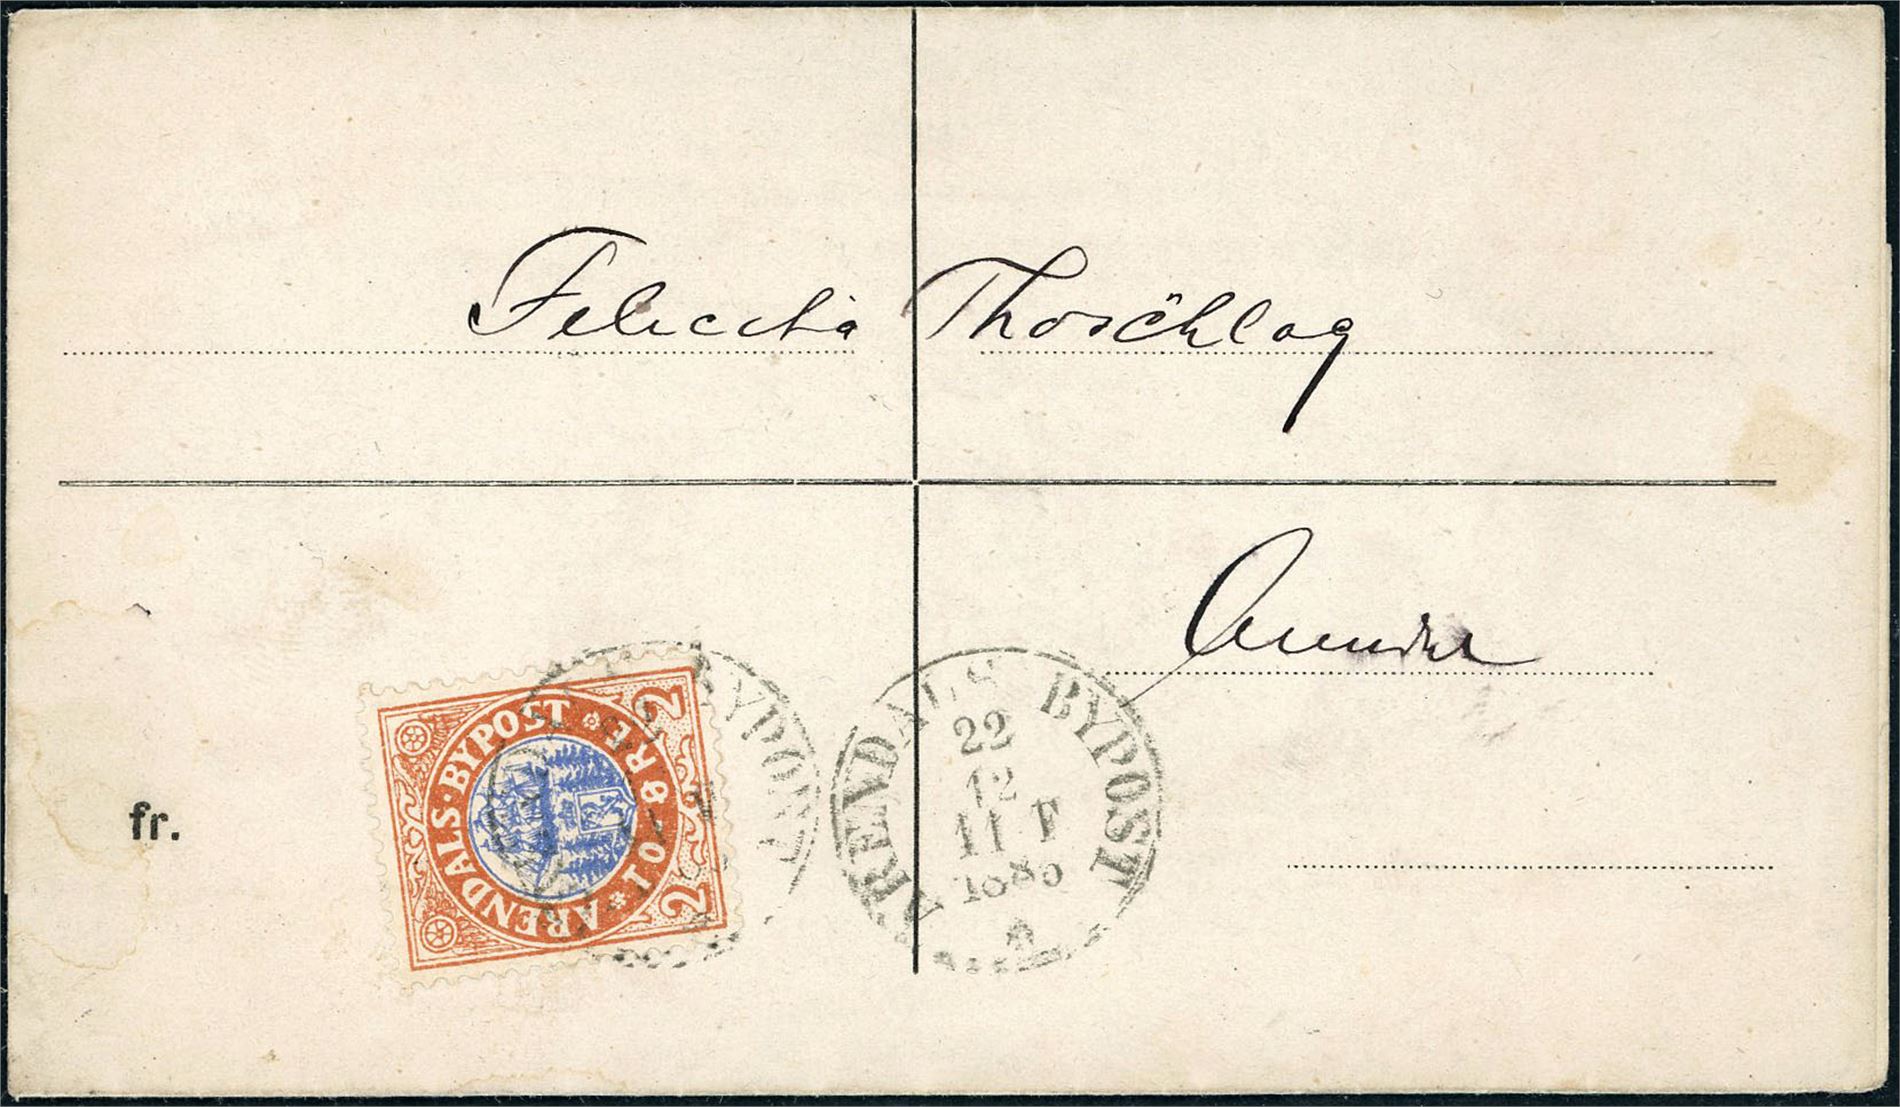 Felicitia Thorschlag
Arendal
fr.
ARENDALS·BYPOST
TO·ØRE
2 2
BYPOST
ARENDALS BYPOST
22
12
11 F
1885